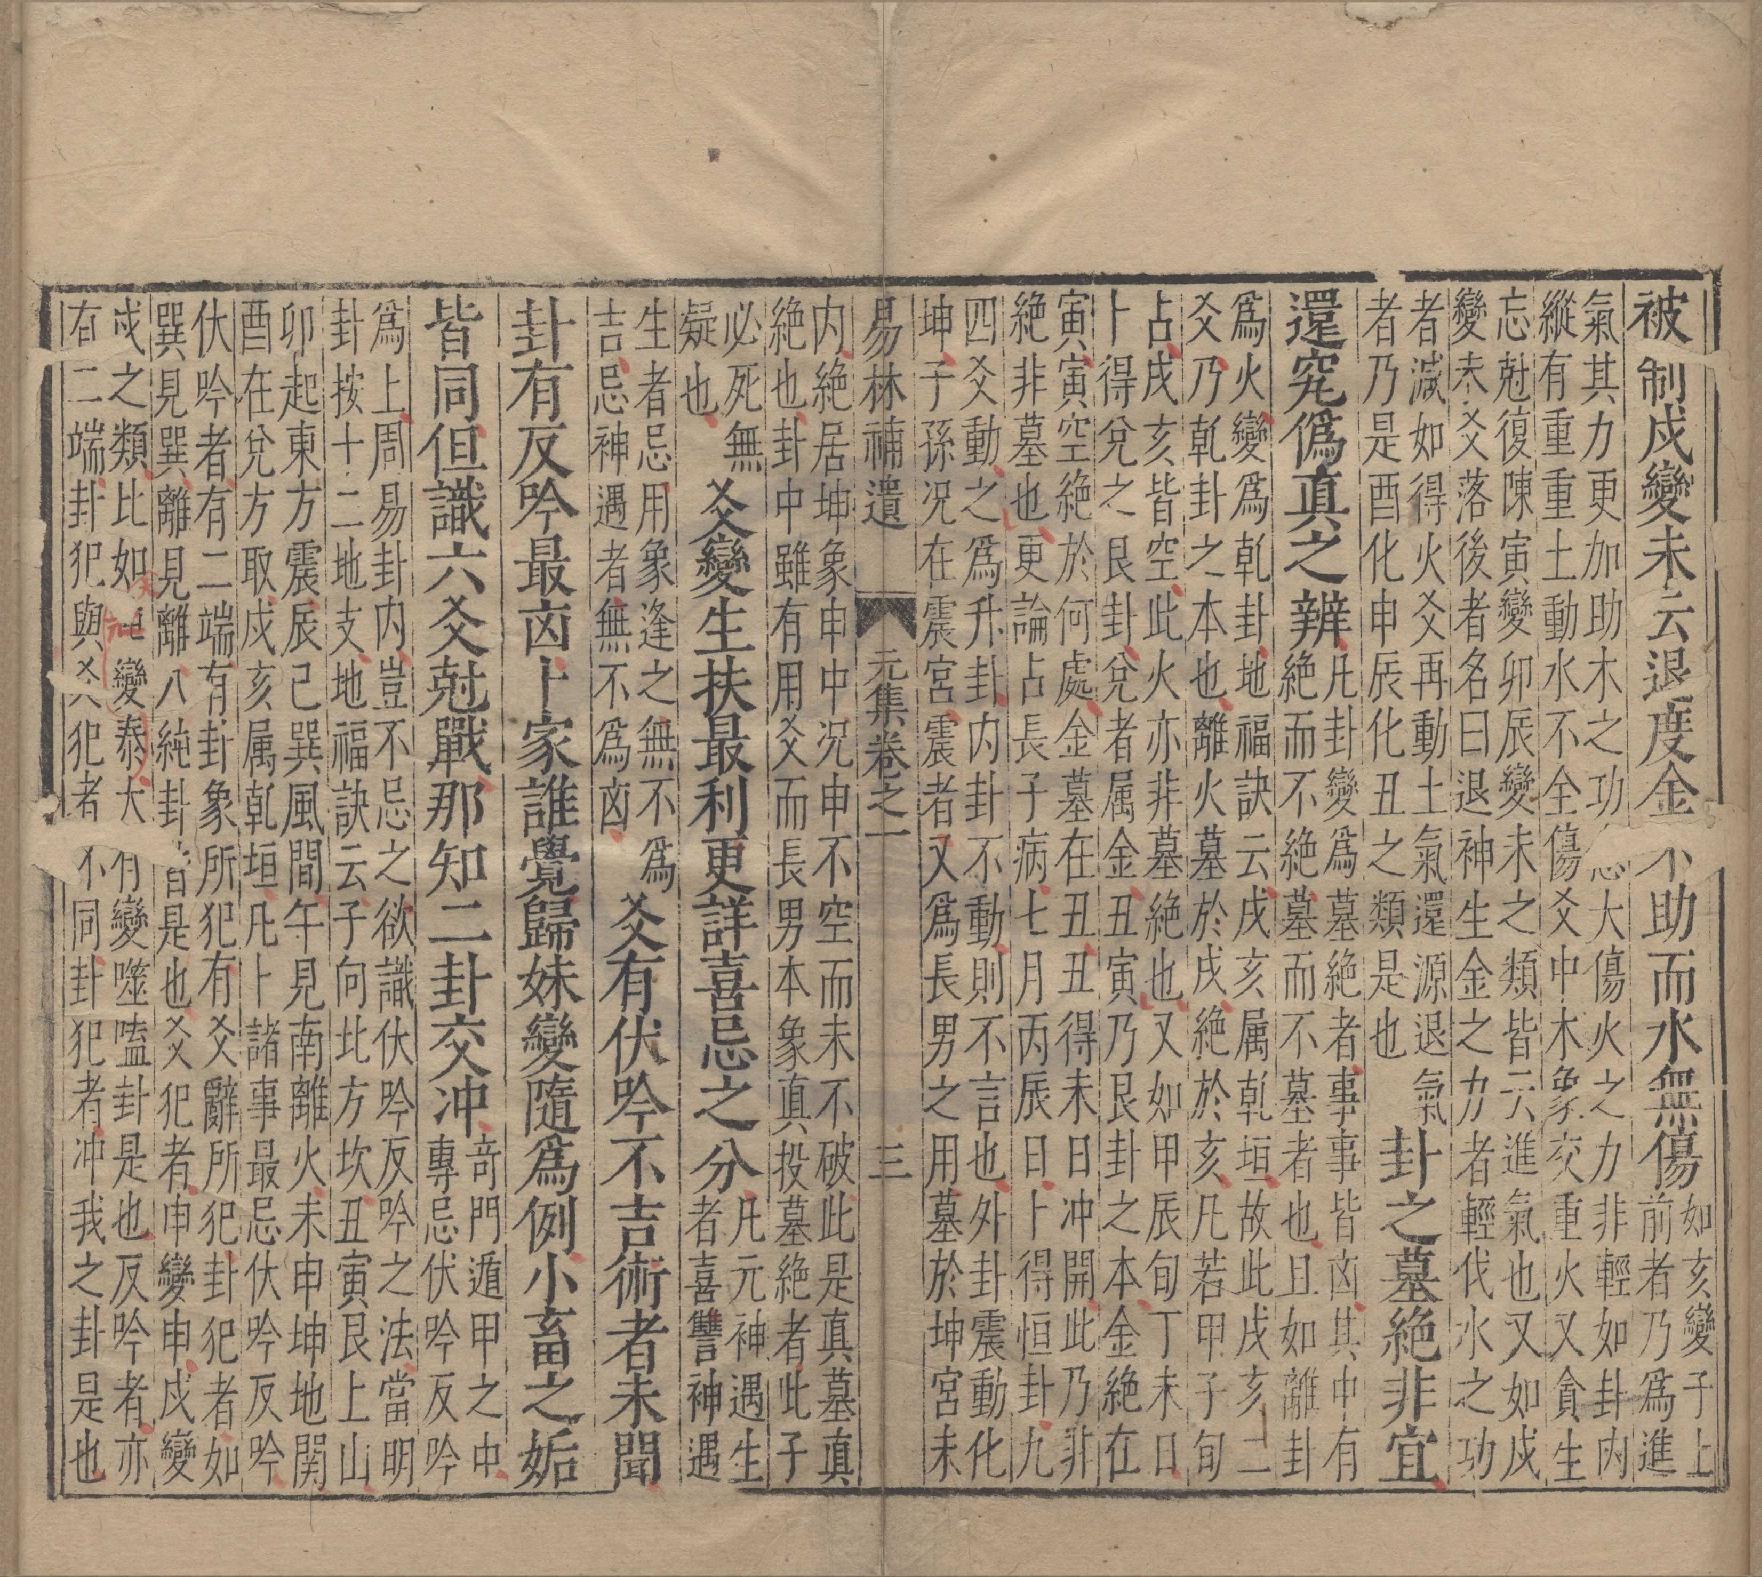 被制戌變未云退度金不助而水無傷如亥變子上
前者乃爲進
氣其力更加助木之功忘大傷火之力非輕如卦內
縱有重重土動水不全傷爻中木象交重火又貪生
忘尅復陳寅變卯辰變未之類皆云進氣也又如戌
變未爻落後者名曰退神生金之力者輕伐水之功
者減如得火爻再動土氣還源退氣
者乃是酉化申辰化丑之類是也
卦之墓絕非宜
還究僞真之辨凡卦變爲墓絕者事事皆凶其中有
絕而不絕墓而不墓者也且如離卦
爲火變爲乹卦地福訣云戌亥属乹垣故此戌亥二
爻乃乹卦之本也離火墓於戌絕於亥凡若甲子旬
占戌亥皆空此火亦非墓絕也又如甲辰旬丁未日
卜得兌之艮卦兌者属金丑寅乃艮卦之本金絕在
寅寅空絕於何處金墓在丑丑得未日冲開此乃非
絕非墓也更論占長子病七月丙辰日卜得恒卦九
四爻動之爲升卦内卦不動則不言也外卦震動化
坤子孫况在震宮震者又爲長男之用墓於坤宮未
易林補遺 元集卷之一 三
内絕居坤象申中况申不空而未不破此是真墓真
絕也卦中雖有用爻而長男本象真投墓絕者此子
必死無
疑也
爻變生扶最利更詳喜忌之分凡元神遇生
者喜讐神遇
生者忌用象逢之無不爲
吉忌神遇者無不爲凶
爻有伏吟不吉術者未聞
卦有反吟最凶卜家誰覺歸妹變隨爲例小畜之姤
皆同但識六爻尅戰那知二卦交冲竒門遁甲之中
專忌伏吟反吟
爲上周易卦内豈不忌之欲識伏吟反吟之法當明
卦按十二地支地福訣云子向北方坎丑寅艮上山
卯起東方震辰巳巽風間午見南離火未申坤地関
酉在兌方取戌亥属乹垣凡卜諸事最忌伏吟反吟
伏吟者有二端有卦象所犯有爻辭所犯卦犯者如
巽見巽離見離八純卦皆是也爻犯者申變申戌變
戌之類比如變泰大有變噬嗑卦是也反吟者亦
有二端卦犯與爻犯者不同卦犯者冲我之卦是也